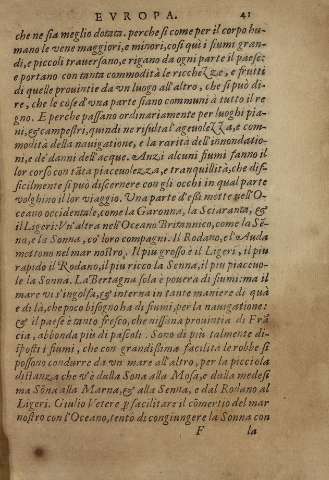 EVROPA. 41
che ne sia meglio dotata. perche sì come per il corpo hu-
mano le vene maggiori, e minori, così quì i fiumi gran-
di, e piccoli trauersano, e rigano da ogni parte il paese:
e portano con tanta commodità le ricchezze, e frutti
di quelle prouintie da vn luogo all'altro, che si può di-
re, che le cose d'una parte siano communi a tutto il re-
gno. E perche passano ordinariamente per luoghi pia-
ni, & campestri, quindi ne risulta l'ageuolezza, e com-
modità della nauigatione, e la rarità dell'innondatio-
ni, e de' danni dell'acque. Anzi alcuni fiumi fanno il
lor corso con tāta piaceuolezza, e tranquillità, che dif-
ficilmente si può discernere con gli occhi in qual parte
volghino il lor viaggio. Vna parte d'essi mette nell'O-
ceano occidentale, come la Garonna, la Sciaranta, &
il Ligeri: Vn'altra nell'Oceano Britannico, come la Sē-
na, e la Sonna, co' loro compagni. Il Rodano, e l'Auda
mettono nel mar nostro. Il più grosso è il Ligeri, il più
rapido il Rodano, il più ricco la Senna, il più piaceuo-
le la Sonna. La Bertagna sola è pouera di fiumi: ma il
mare vi s'ingolfa, & interna in tante maniere di quà
e di là, che poco bisogno ha di fiumi, per la nauigatione:
& il paese è tanto fresco, che nissuna prouintia di Frā
cia, abbonda più di pascoli. Sono di più talmente di-
sposti i fiumi, che con grandissima facilità le robbe si
possono condurre da vn mare all'altro, per la picciola
distanza che v'è dalla Sona alla Mosa, e dalla medesi
ma Sona alla Marna, & alla Senna, e dal Rodano al
Ligeri. Giulio Vetere p facilitare il cōmertio del mar
nostro con l'Oceano, tentò di congiungere la Sonna con
F la